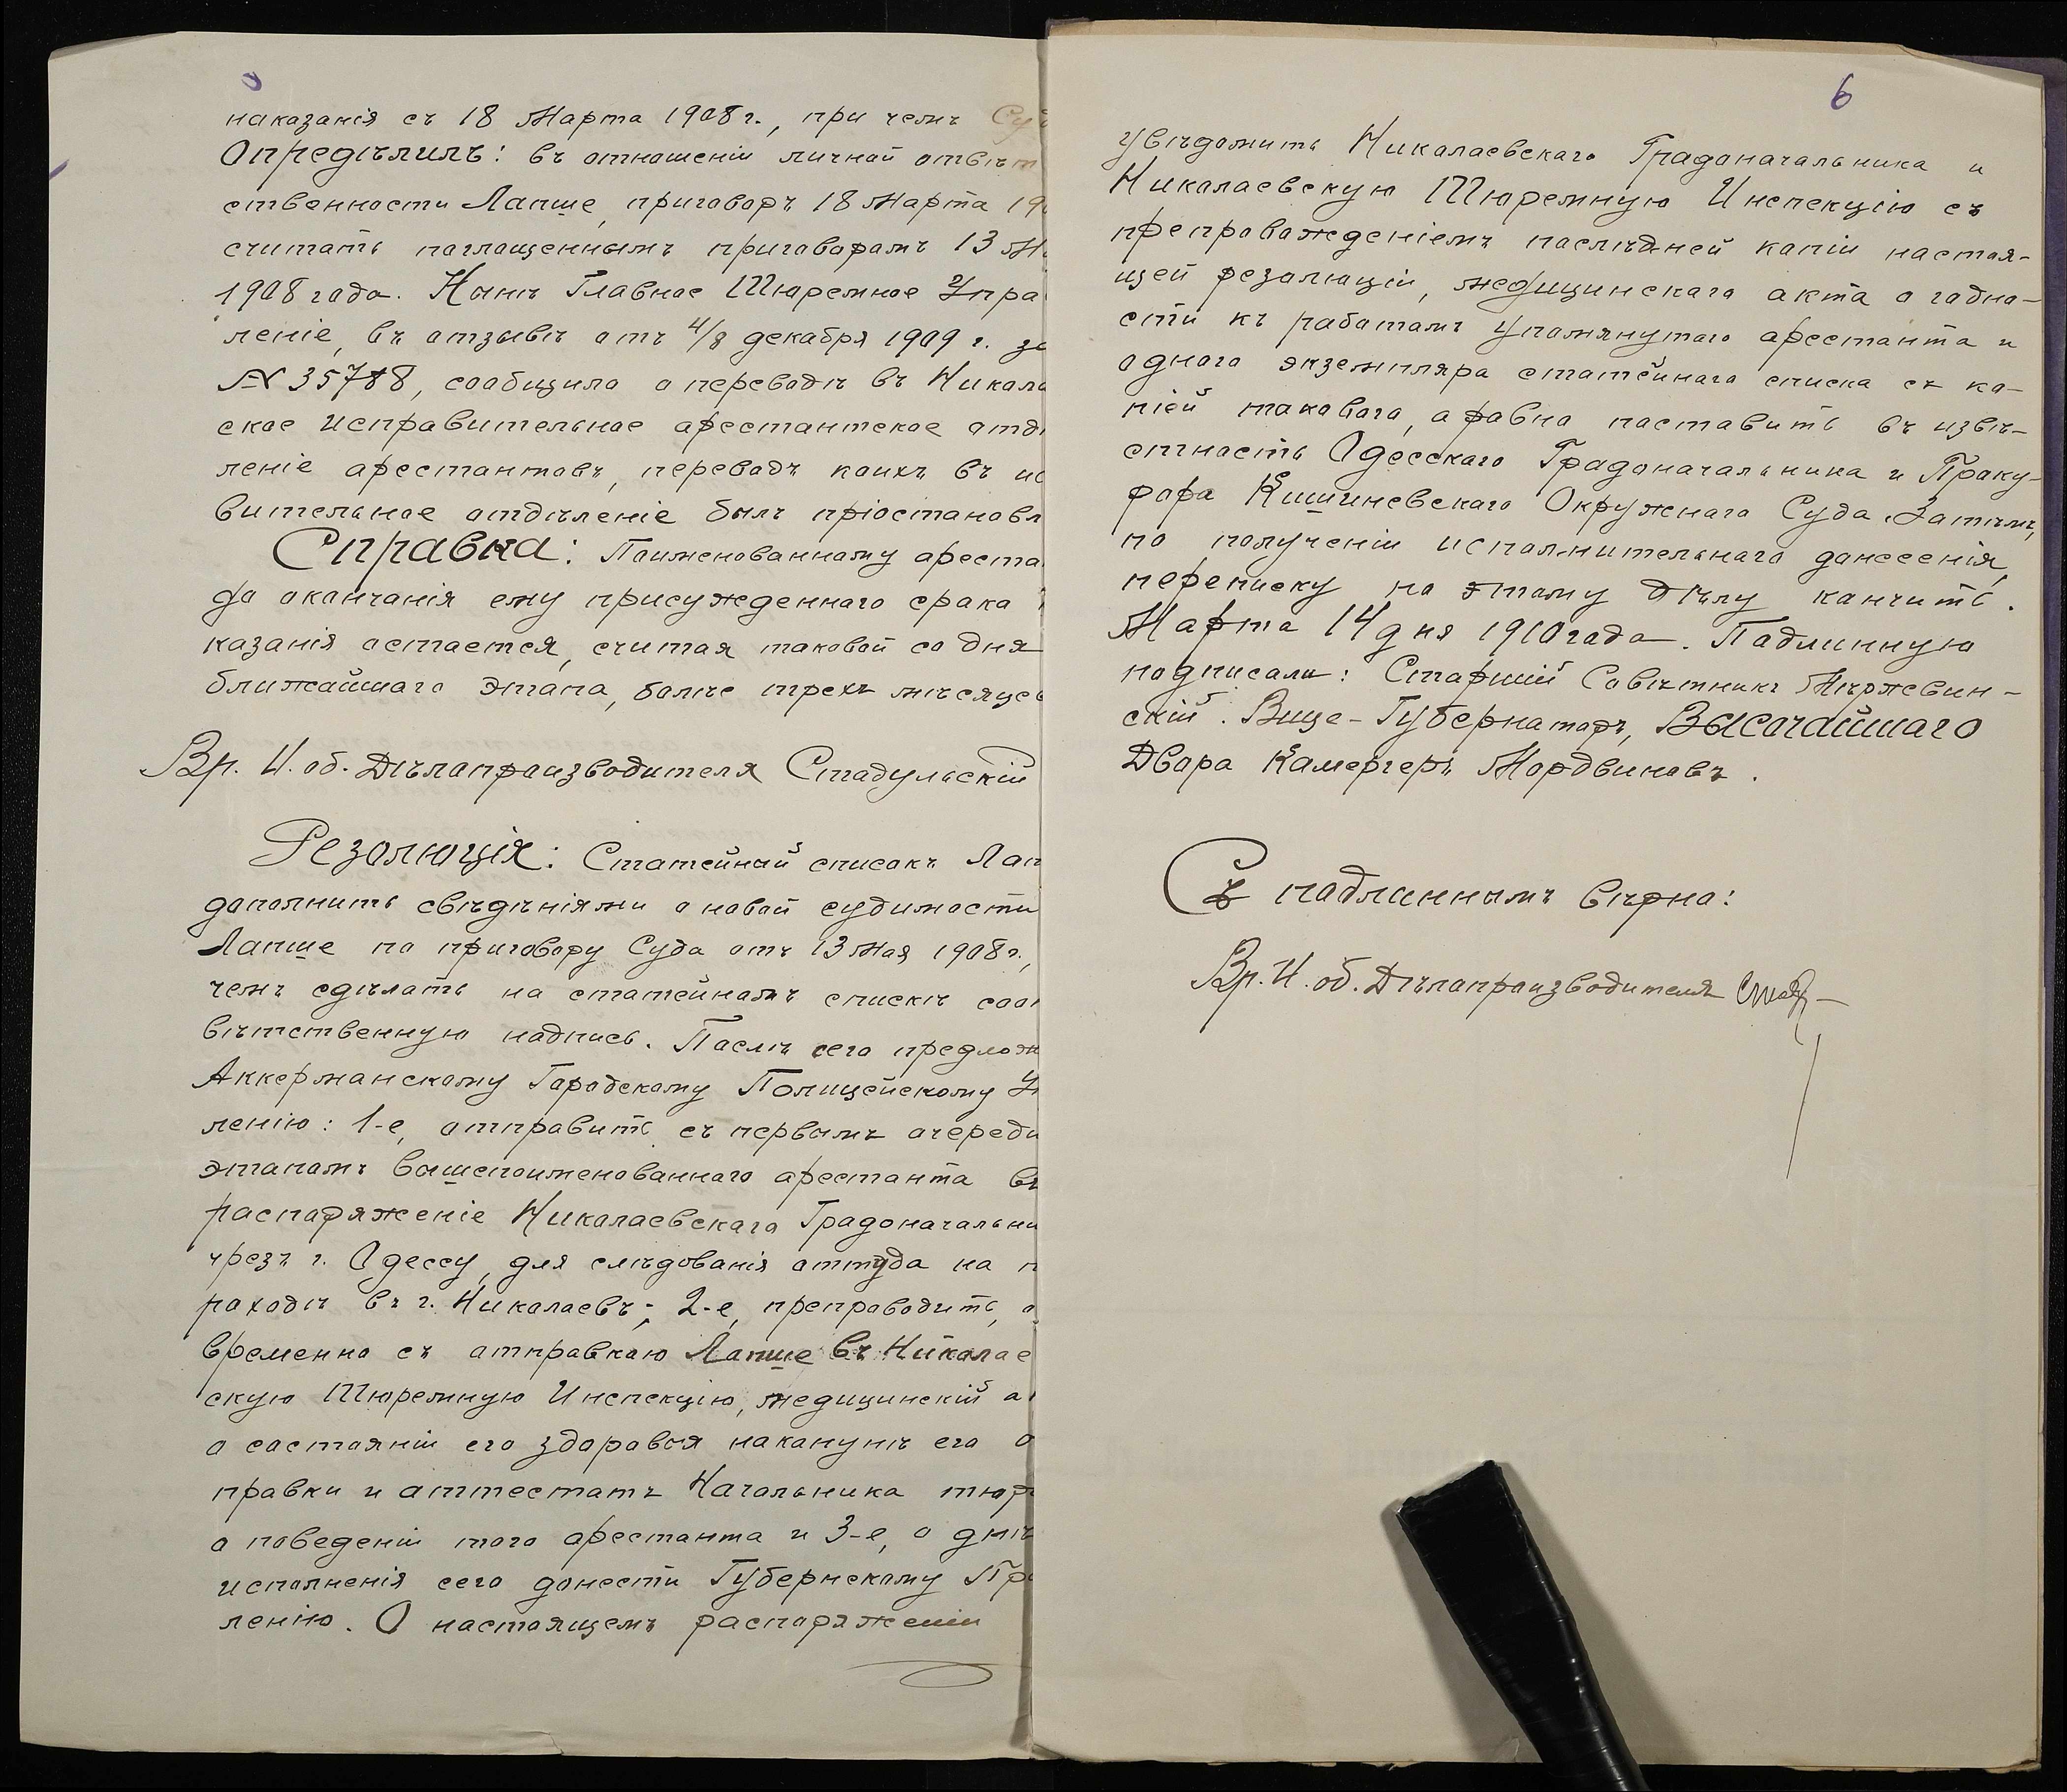 наказанія съ 18 Марта 1908 г., при чемъ Су
Опредѣлилъ: въ отношеніи личной отвѣт
ственности Лапше, приговоръ 18 Марта 19
считать поглощеннымъ приговоромъ 13 М
1908 года. Нынѣ Главное Тюремное Упра
леніе, въ отзывѣ отъ 4/8 декабря 1909 г. за
№ 35788, сообщило о переводѣ въ Никола
ское исправительное арестантское отдѣ
леніе арестантовъ, переводъ коихъ въ ис
вительное отдѣленіе былъ пріостановл
Справка: Поименованномуареста
до окончанія ему присужденнаго срока
казанія остается, считая таковой со дня
ближайшаго этапа, болѣе трехъ мѣсяцев
Вр. И. об. Дѣлопроизводителя Стадульскій
Резолюція: Статейный списокъ Лап
дополнить свѣдѣніями о новой судимости
Лапше по приговору Суда отъ 13 Мая 1908 г.,
чемъ сдѣлать на статейномъ спискѣ соот
вѣтственную надпись. Послѣ сего предлож
Аккерманскому Городскому Полицейскому У
ленію: 1-е, отправить съ первымъ очеред
этапомъ вышепоименованнаго арестанта въ
распоряженіе Николаевскаго Градоначальни
чрезъ г. Одессу, для слѣдованія оттуда на п
роходѣ въ г. Николаевъ; 2-е, препроводить, о
временно съ отправкою Лапше въ Николае
скую Тюремную Инспекцію, медицинскій а
о состояніи его здоровья наканунѣ его о
правки и аттестатъ Начальника тюр
о поведеніи того арестанта и 3-е, о днѣ
исполненія сего донести Губернскому Пр
ленію. О настоящемъ распоряженіи
6
увѣдомить Николаевскаго Градоначальника и
Николаевскую Тюремную Инспекцію съ
препровожденіемъ послѣдней копіи настоя-
щей резолюціи, медицинскаго акта о годно-
сти къ работамъ упомянутаго арестанта и
одного экземпляра статейнаго списка съ ко-
піей таковаго, а равно поставить въ извѣ-
стность Одесскаго Градоначальника и Проку-
рора Кишиневскаго Окружнаго Суда. Затѣмъ,
по полученіи исполнительнаго донесенія,
переписку по этому дѣлу кончить.
Марта 14 дня 1910 года. Подлинную
подписали: Старшій Совѣтникъ Мѣржевин-
скій. Вице-Губернаторъ, Высочайшаго
Двора Камергеръ Мордвиновъ.
Съ подлиннымъ вѣрно:
Вр. И. об. Дѣлопроизводителя